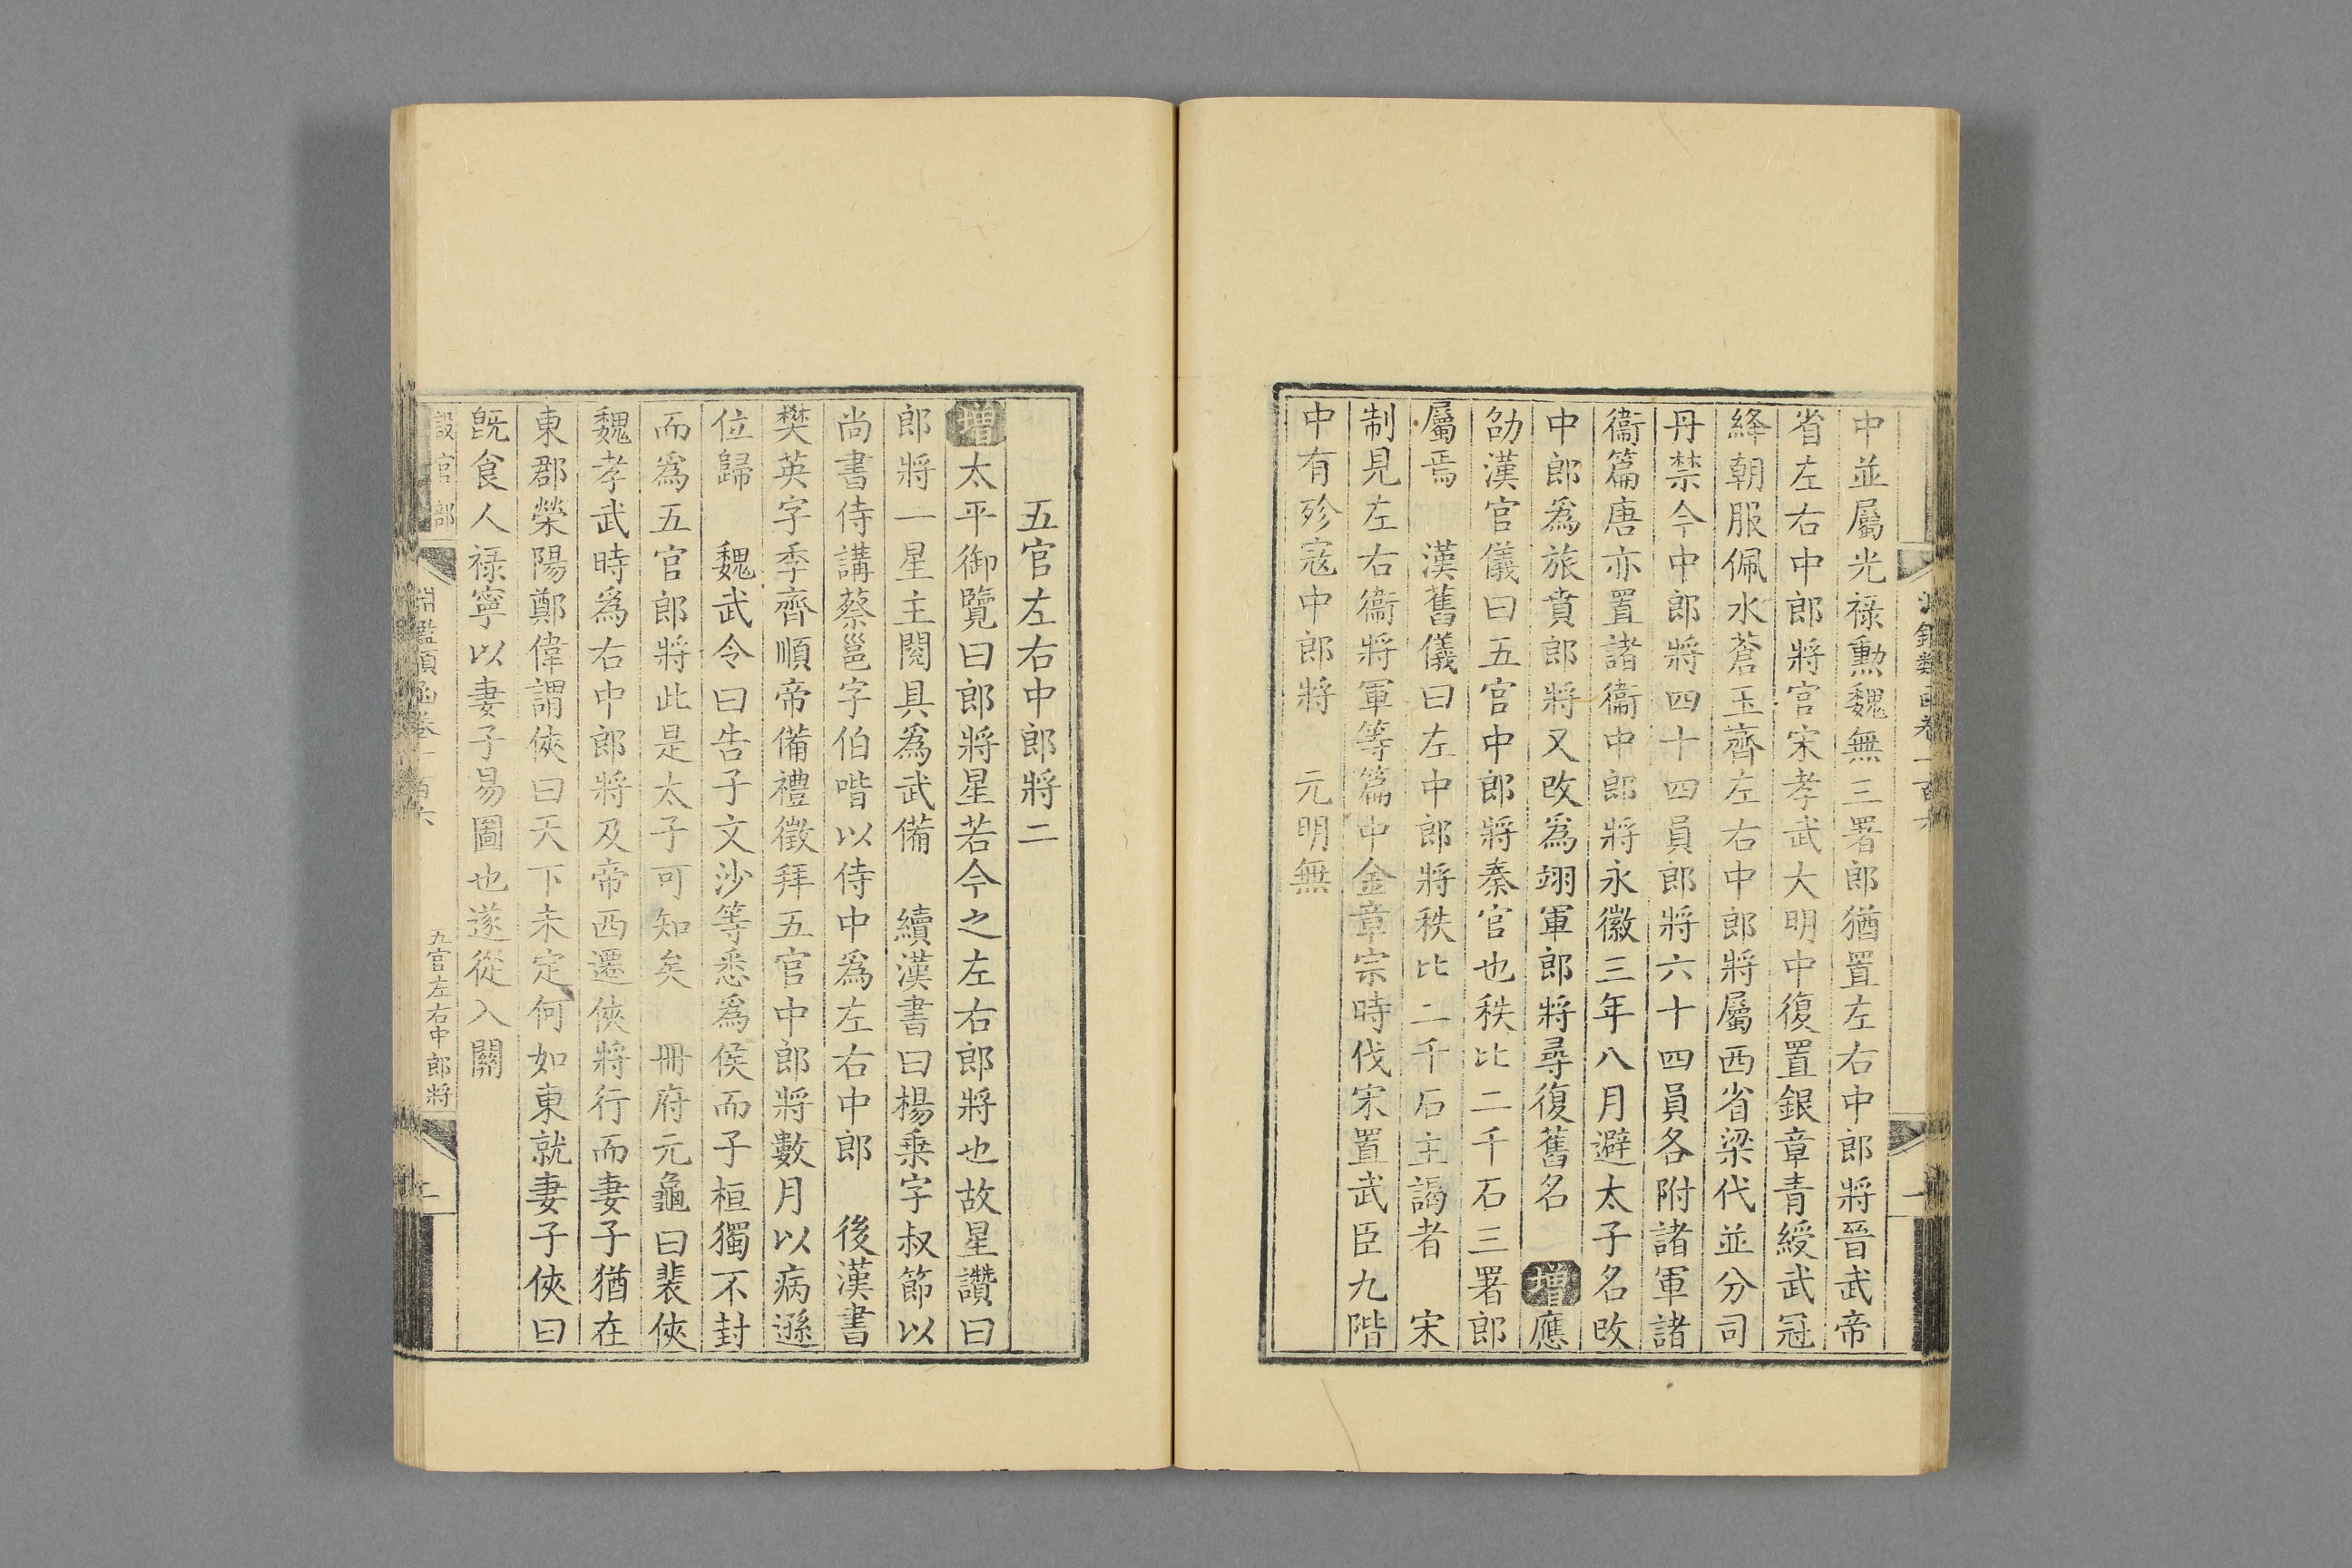 中並屬光祿勲魏無三署郎猶置左右中郎將晉武帝
省左右中郎將官宋孝武大明中復置銀章青綬武冠
絳朝服佩水蒼玉齊左右中郎將屬西省梁代並分司
丹禁今中郎將四十四員郎將六十四員各附諸軍諸
衞篇唐亦置諸衞中郎將永徽三年八月避太子名改
中郎爲旅賁郎將又改爲翊軍郎將尋復舊名 增應
劭漢官儀曰五官中郎將秦官也秩比二千石三署郎
屬焉 漢舊儀曰左中郎將秩比二千石主謁者 宋
制見左右衞將軍等篇中金章宗時伐宋置武臣九階
中有殄寇中郎將 元明無
五官左右中郎將二
增太平御覽曰郎將星若今之左右郎將也故星讚曰
郎將一星主閱具爲武備 續漢書曰楊乗字叔節以
尚書侍講蔡邕字伯喈以侍中爲左右中郎 後漢書
樊英字季齊順帝備禮徵拜五官中郎將數月以病遜
位歸 魏武令曰告子文沙等悉爲侯而子桓獨不封
而爲五官郎將此是太子可知矣 冊府元龜曰裴俠
魏孝武時爲右中郎將及帝西遷俠將行而妻子猶在
東郡滎陽鄭偉謂俠曰天下未定何如東就妻子俠曰
既食人祿寧以妻子易圖也遂從入關
設官部
淵鑑類函卷一百六
五官左右中郎將
二